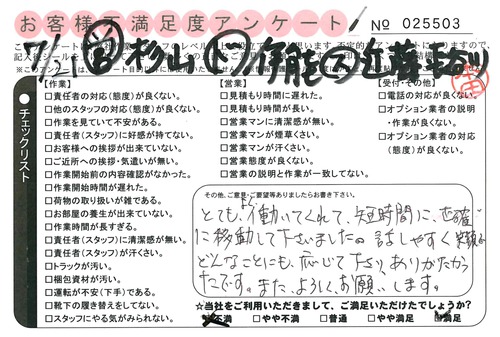 お客様不満足度アンケート
No 025503
7/1 杉山 伊能 近藤
チェックリスト
【作業】
□責任者の対応(態度)が良くない。
□他のスタッフの対応(態度)が良くない。
□作業を見ていて不安がある。
□責任者(スタッフ)に好感が持てない。
□お客様への挨拶が出来ていない。
□ご近所への挨拶・気遣いが無い。
□作業開始前の内容確認がなかった。
□作業開始時間が遅れた。
□荷物の取り扱いが雑である。
□お部屋の養生が出来ていない。
□作業時間が長すぎる。
□責任者(スタッフ)に清潔感が無い。
□責任者(スタッフ)が汗くさい。
□トラックが汚い。
□梱包資材が汚い。
□運転が不安(下手)である。
□靴下の履き替えをしてない。
□スタッフにやる気がみられない。
【営業】
□見積もりに遅れた。
□見積もり時間が長い。
□営業マンに清潔感が無い。
□営業マンが煙草くさい。
□営業マンが汗くさい。
□営業態度が良くない。
□営業の説明と作業が一致してない。
【受付・その他】
□電話の対応が良くない。
□オプション業者の説明
・作業が良くない。
□オプション業者の対応
(態度)が良くない。
その他、ご意見・ご要望等ありましたらお書き下さい。
とても、働いてくれて、短時間に、正確
に移動して下さいました。話しやすく
どんなことにも、応じて下さり、ありがたかっ
たです。また、よろしくお願いします。
☆当社をご利用いただきまして、ご満足いただけたでしょうか?
□不満 □やや不満 □普通 □やや満足 □満足